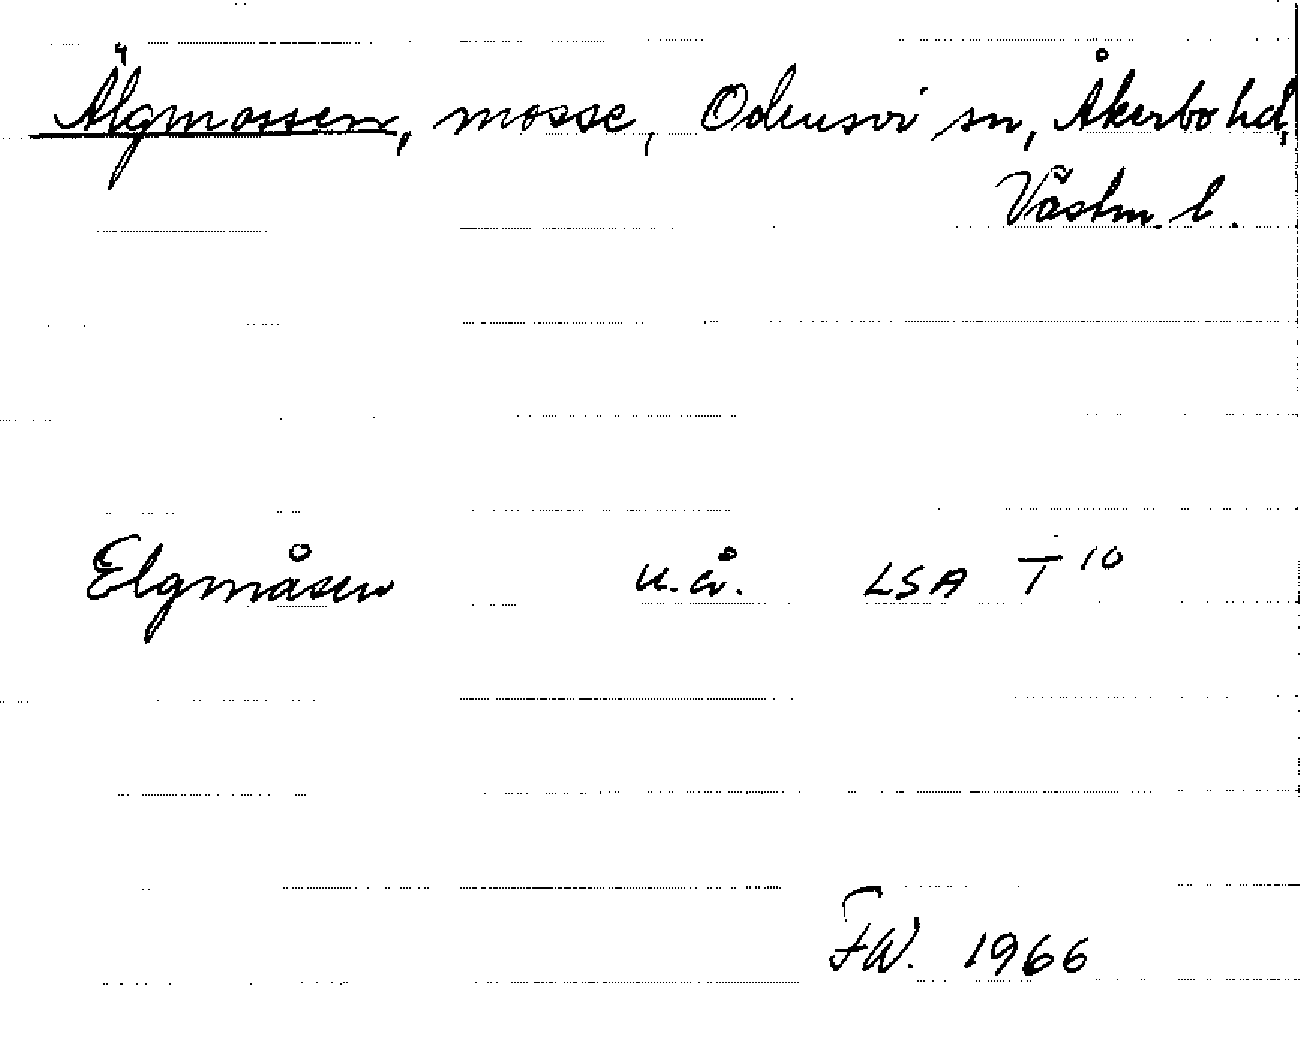 Älgmossen, mosse, Odensvi sn, Åkerbo hd,
Västm. l.
Elgmåsen u.å. LSA T 10
FW. 1966